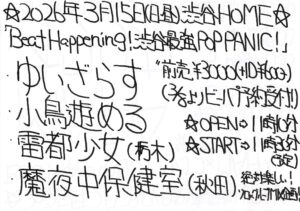 ☆2026年3月15日(日昼)渋谷HOME☆
「Beat Happening!渋谷最強POPPANIC!」
・ゆいざらす
・小鳥遊める
・雷都少女(栃木)
・魔夜中保健室(秋田)
"前売¥3000(+1D¥600)
(2/6よりビート予約受付!!)
☆OPEN⇨11時10分
☆START⇨11時30分
(予定)
絶対楽しい!